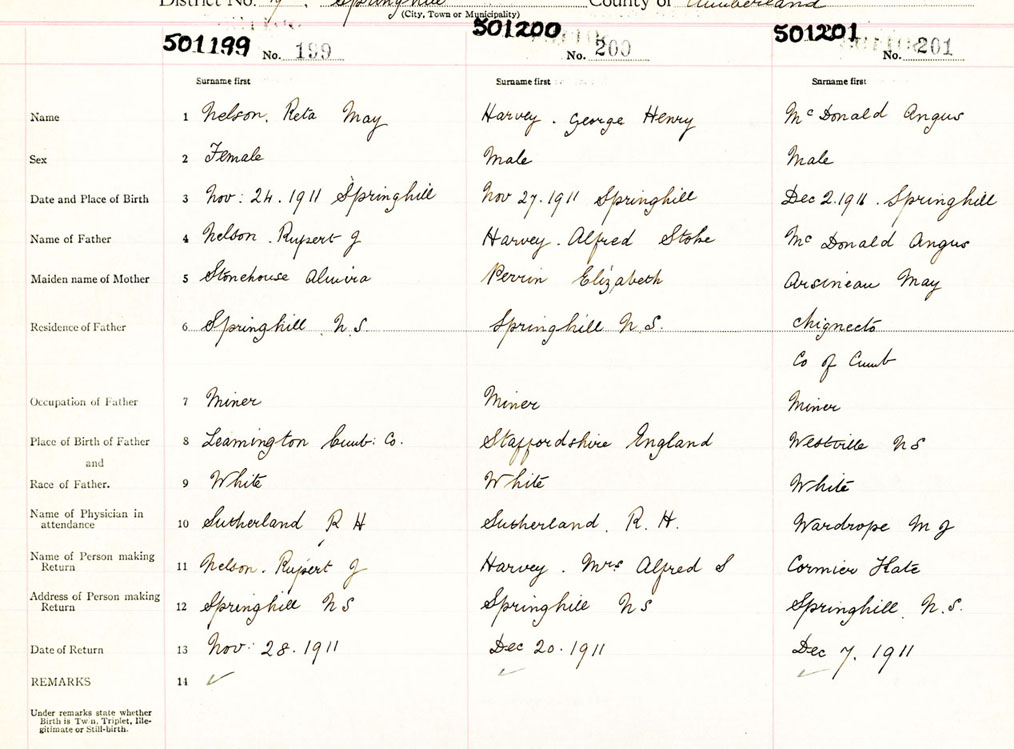 District No. 7. Springhill County of Cumberland
(City, Town or Municipality)
501199 No. 199 501200 No. 200 501201 No. 201
Surname first Surname first Surname first
Name 1 Nelson, Reta May Harvey. George Henry McDonald Angus
Sex 2 Female Male Male
Date and Place of Birth 3 Nov: 24. 1911 Springhill Nov 27. 1911 Springhill Dec 2. 1911. Springhill
Name of Father 4 Nelson. Rupert J Harvey. Alfred Stoke McDonald Angus
Maiden name of Mother 5 Stonehouse Almira Perrin Elizabeth Arsineau May
Residence of Father 6 Springhill N.S. Springhill N.S. Chignecto
Co of Cumb
Occupation of Father 7 Miner Miner Miner
Place of Birth of Father 8 Leamington Cumb: Co. Staffordshire England Westville NS
and
Race of Father. 9 White White White
Name of Physician in
attendance 10 Sutherland R H Sutherland. R. H. Wardrope M J
Name of Person making
Return 11 Nelson. Rupert J Harvey. Mrs Alfred S Cormier Kate
Address of Person making
Return 12 Springhill NS Springhill NS Springhill. N.S.
Date of Return 13 Nov: 28. 1911 Dec 20. 1911 Dec 7. 1911
REMARKS 14 ✓ ✓ ✓
Under remarks state whether
Birth is Twin, Triplet, Ille-
gitimate or Still-birth.